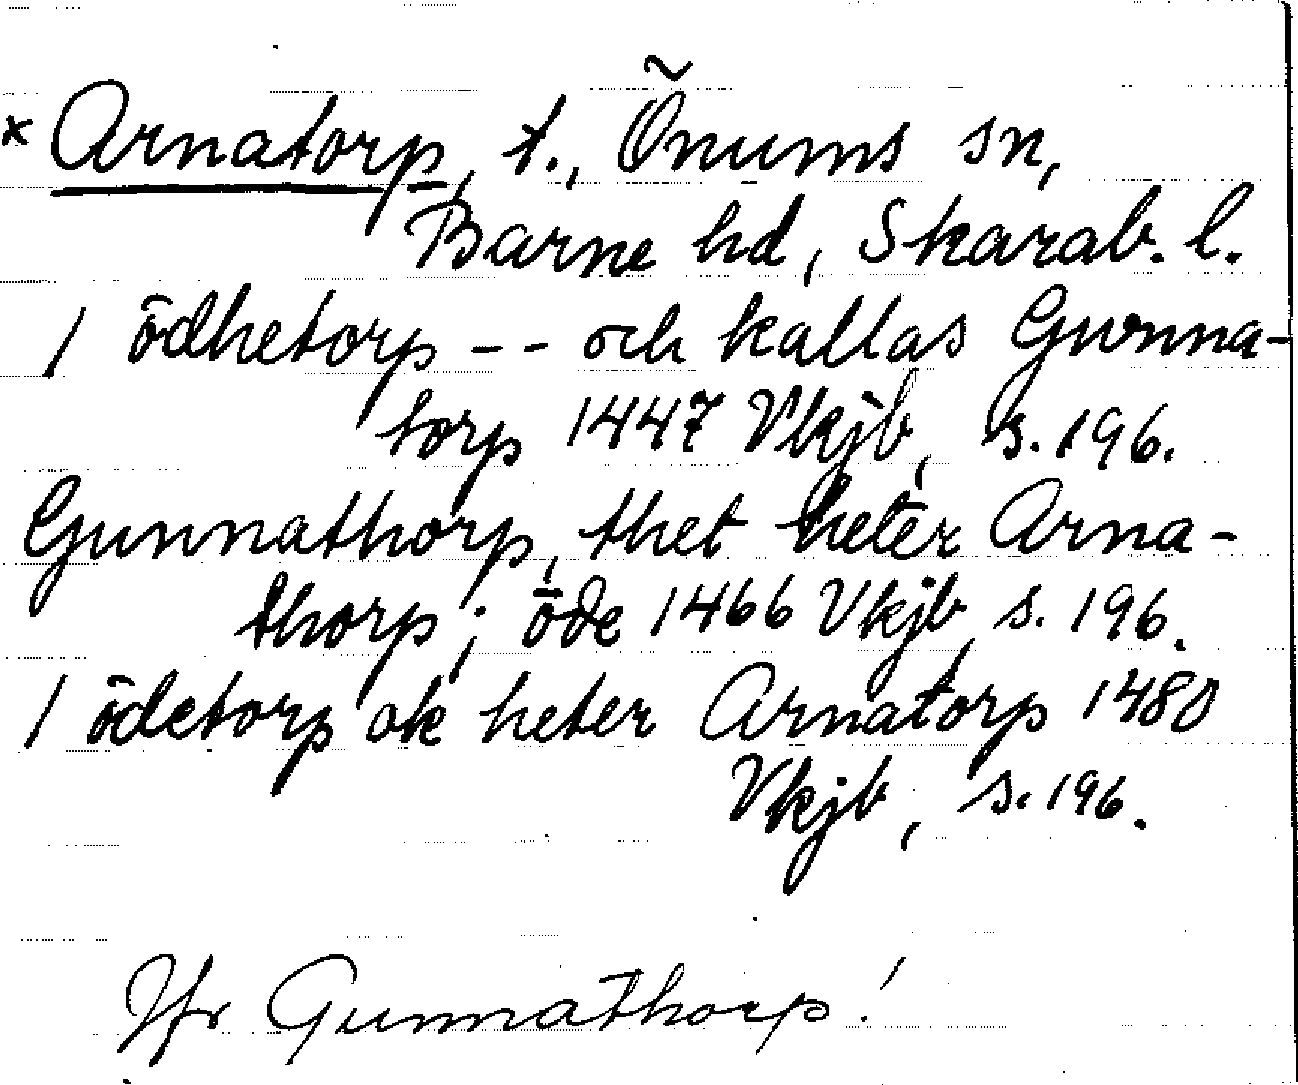 × Arnatorp, t., Önums sn,
Barne hd, Skarab. l.
1 ödhetorp -- och kallas Gunna-
torp 1447 Vkjb, s. 196.
Gunnathorp, thet heter Arna-
thorp; öde 1466 Vkjb, s. 196.
1 ödetorp ok heter Arnatorp 1480
Vkjb, s. 196.
Jfr Gunnathorp!